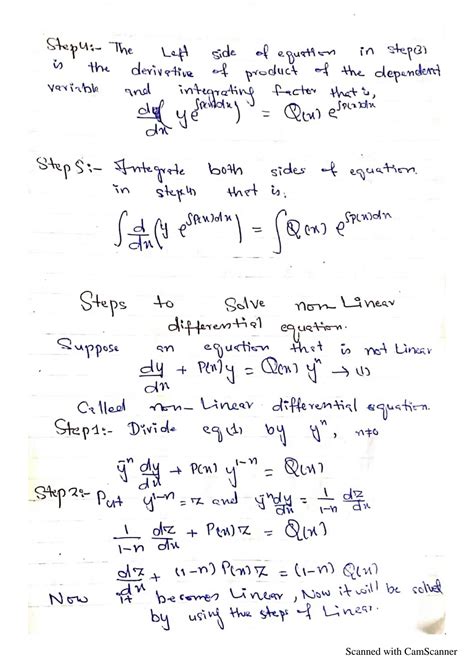 Step4:- The Left side of equation in step(3)
is the derivative of product of the dependent
variable and integrating factor that is,
d/dx (y e^∫P(x)dx) = Q(x) e^∫P(x)dx
Step5:- Integrate both sides of equation
in step(4) that is.
∫ d/dx (y e^∫P(x)dx) = ∫ Q(x) e^∫P(x)dx
Steps to Solve non Linear
differential equation.
Suppose an equation that is not Linear
dy/dx + P(x)y = Q(x) y^n → (1)
Called non-Linear differential equation.
Step1:- Divide eq(1) by y^n, n≠0
y^-n dy/dx + P(x) y^1-n = Q(x)
Step2:- Put y^1-n = z and y^-n dy/dx = 1/1-n dz/dx
1/1-n dz/dx + P(x) z = Q(x)
dz/dx + (1-n) P(x) z = (1-n) Q(x)
Now it becomes Linear, Now it will be solved
by using the steps of Linear.
Scanned with CamScanner